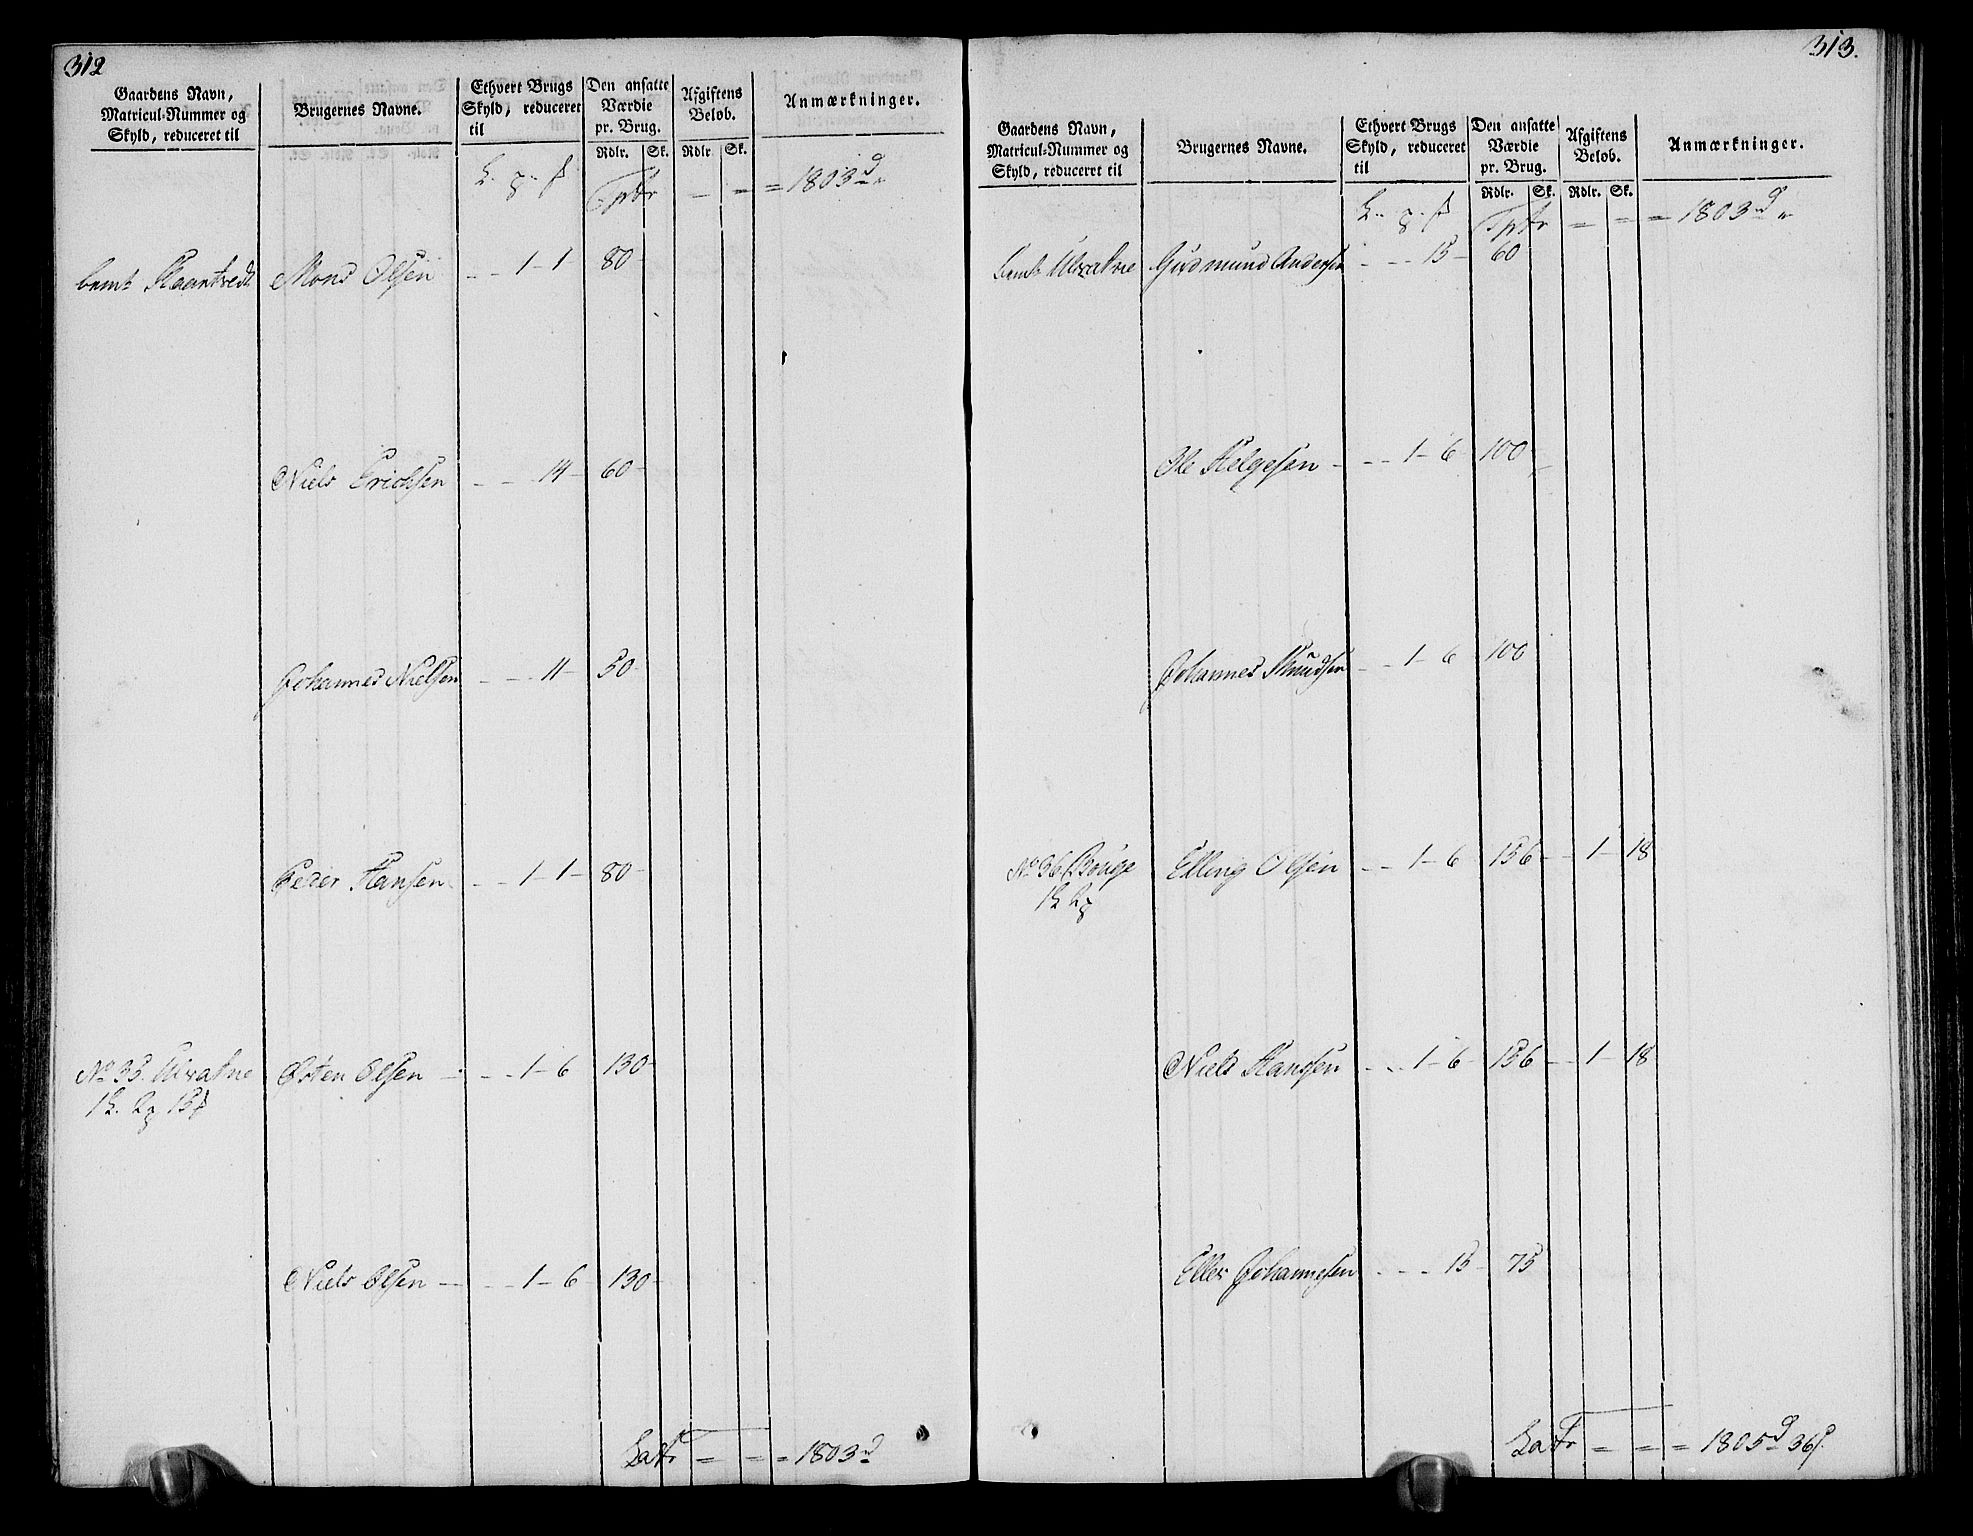 312
Gaardens Navn, Matricul-Nummer og Skyld, reduceret til
Brugernes Navne.
Ethvert Brugs Skyld, reduceret til
Den ansatte Værdie pr. Brug.
Afgiftens Beløb.
Anmærkninger.
Rdlr. Sk. Rdlr. Sk.
Tptr - = = 1803
bemt Haantvedt Mons Olsen - - 1 - 1 80 -
Niels Erichsen - - 14 - 60 -
Johannes Nielsen - - 11 - 50 -
Peder Hansen - - 1 - 1 - 80 -
No 35. Ulvatne Østen Olsen - - - 1 - 6 130 -
Niels Olsen - - - 1 - 6 130 -
Latr = = = 1803
313.
Gaardens Navn, Matricul-Nummer og Skyld, reduceret til
Brugernes Navne.
Ethvert Brugs Skyld, reduceret til
Den ansatte Værdie pr. Brug.
Afgiftens Beløb.
Anmærkninger.
Rdlr. Sk. Rdlr. Sk.
Tptr = = = 1803
bemt Ulvatne Gudmund Andersen - - - 15 - 60
Ole Helgesen - - - 1 - 6 100
Johannes Knudsen - - 1 - 6 100
No 36 Bouge Elling Olsen - - 1 - 6 156 - - 1 - 18
Niels Hansen - - 1 - 6 156 - - 1 - 18
Eller Johannesen - - - 15 - 75
Latr = = = 1805 36